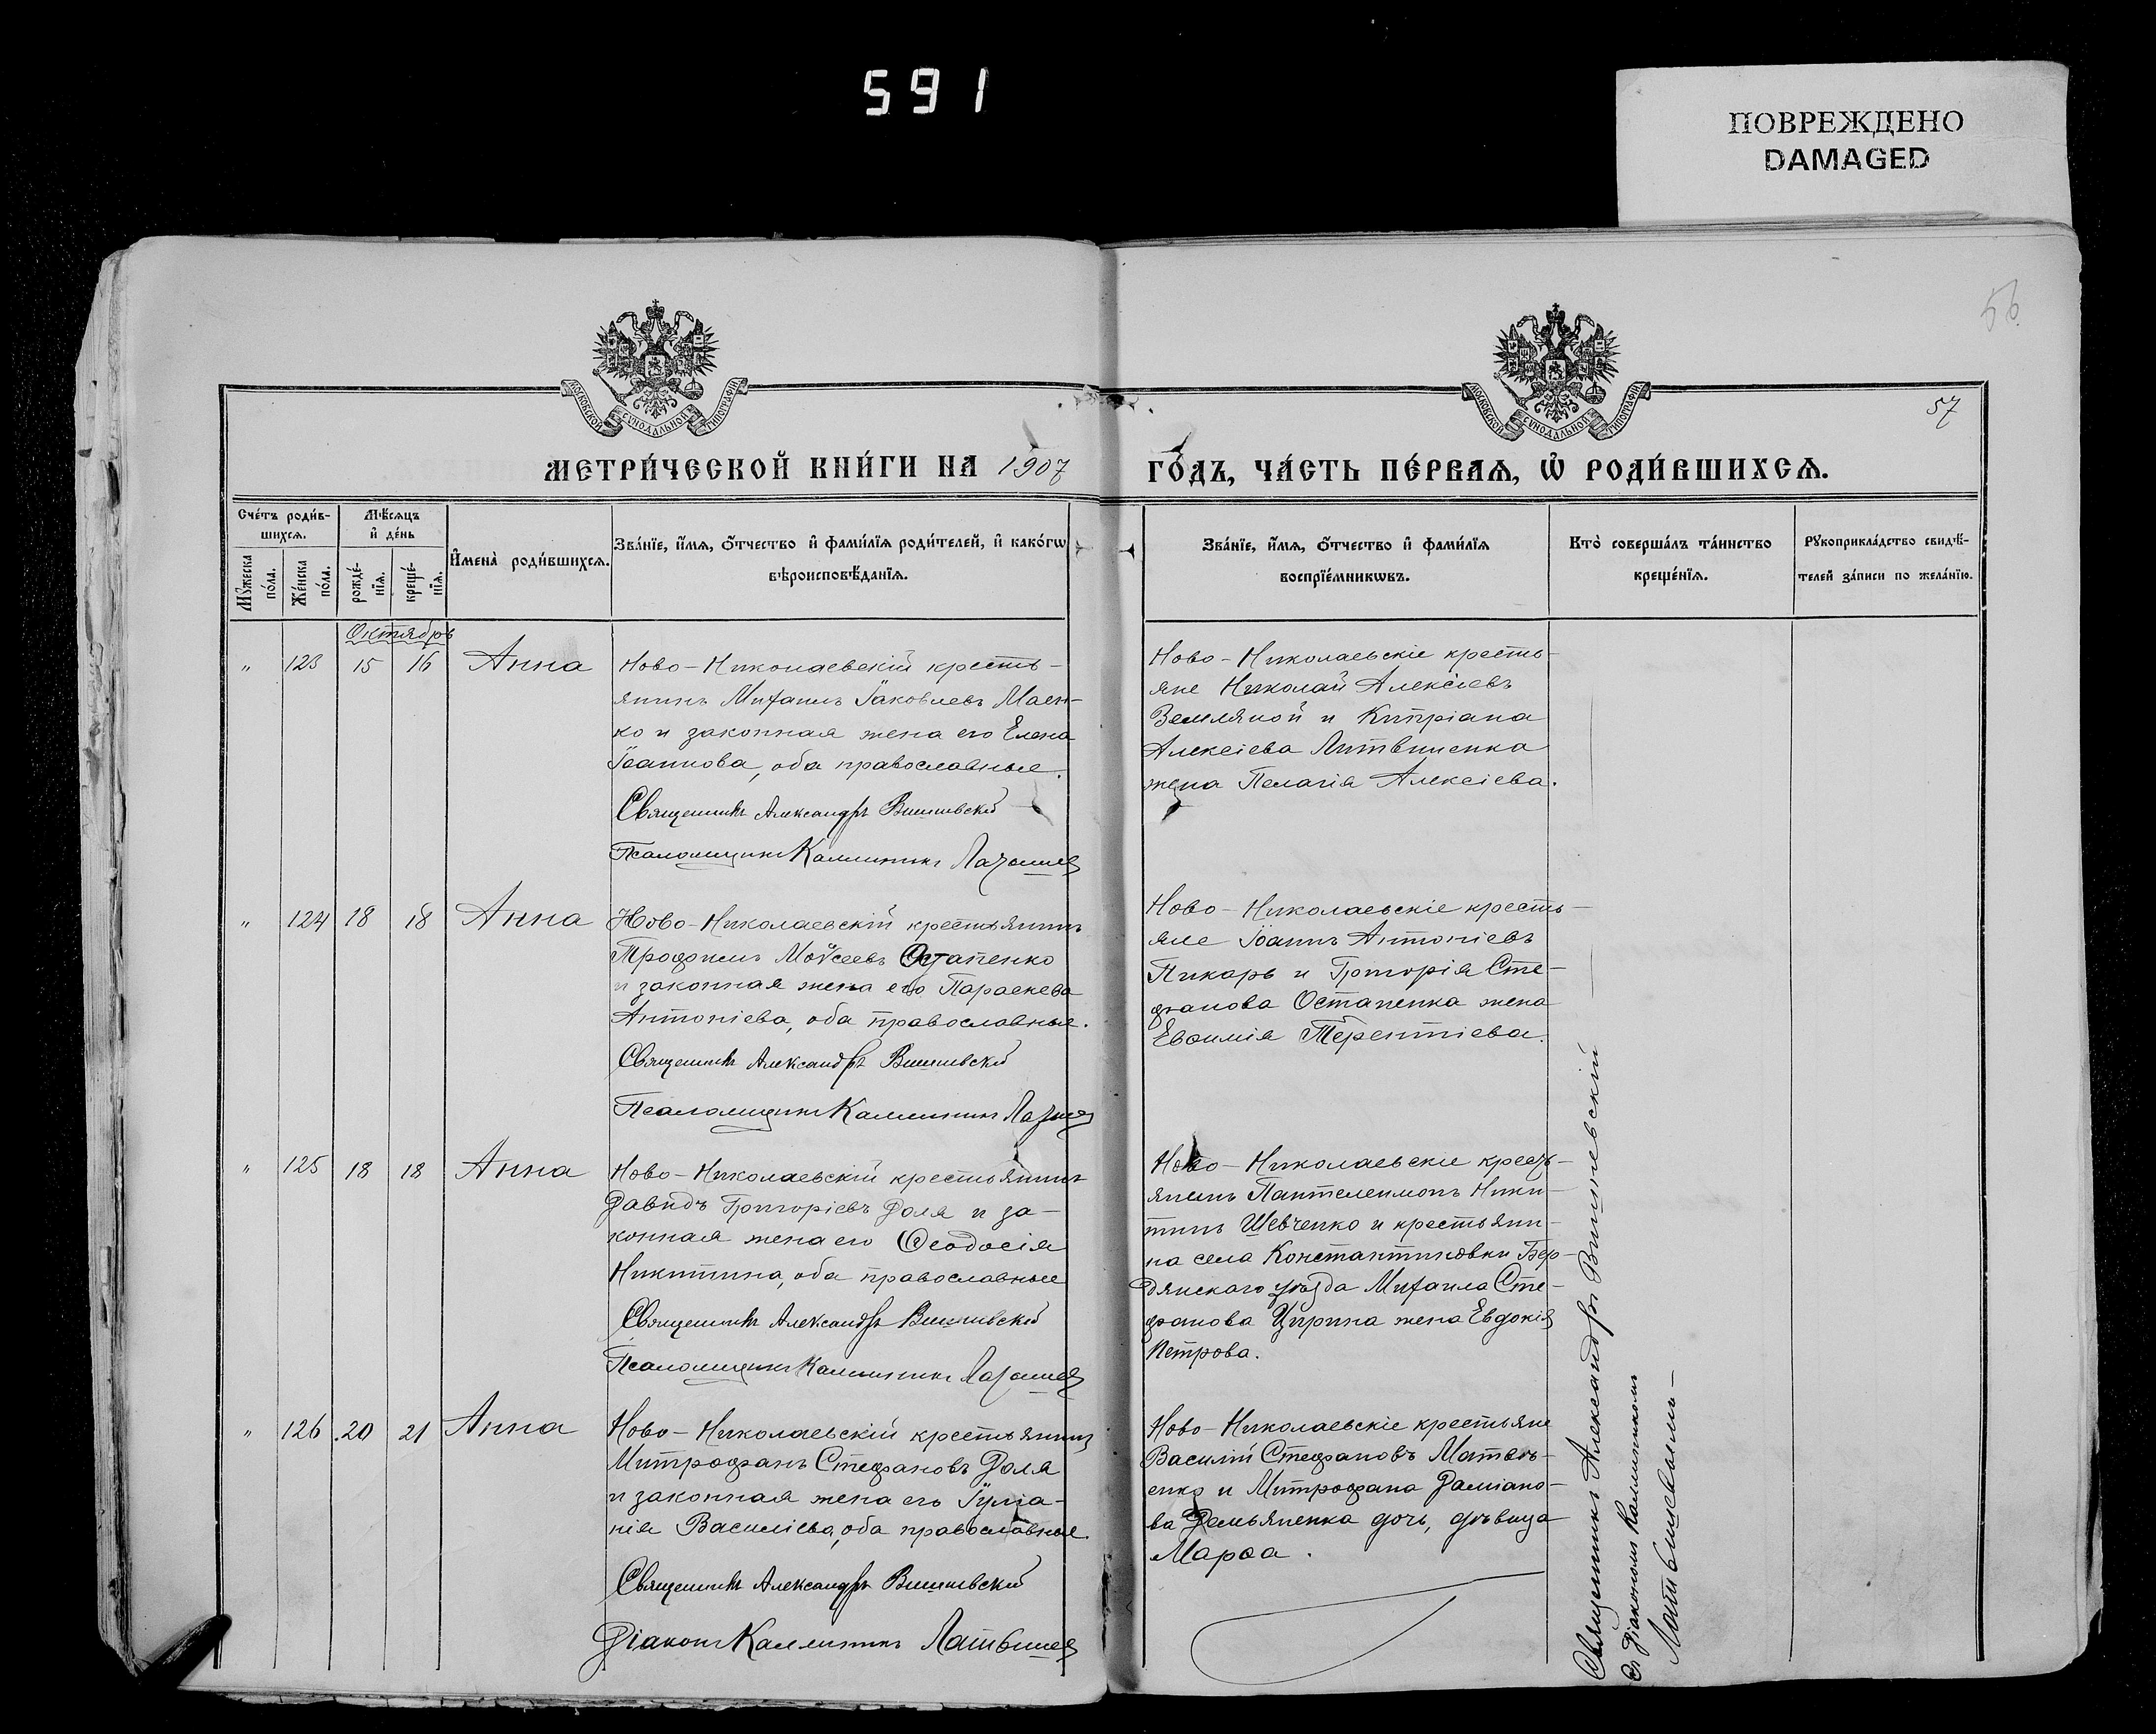 591
ПОВРЕЖДЕНО
DAMAGED
56
57
МОСКОВСКОЙ СѴНОДАЛЬНОЙ ТИПОГРАФІИ
МОСКОВСКОЙ СѴНОДАЛЬНОЙ ТИПОГРАФІИ
МЕТРИ́ЧЕСКОЙ КНИ́ГИ НА 1907 ГО́ДЪ, ЧА́СТЬ ПЕ́РВАѦ, Ѡ҆ РОДИ́ВШИХСѦ.
Сче́тъ роди́в-
шихсѧ.
Мꙋ́жеска
по́ла.
Же́нска
по́ла.
Мѣ́сѧцъ
и҆ де́нь
рожде́-
нїѧ.
креще́-
нїѧ.
И҆мена̀ роди́вшихсѧ.
Зва́нїе, и҆́мѧ, о҆́тчество и҆ фами́лїѧ роди́телей, и҆ како́гѡ
вѣроисповѣ́данїѧ.
Зва́нїе, и҆́мѧ, о҆́тчество и҆ фами́лїѧ
воспрїе́мникѡвъ.
Кто̀ соверша́лъ та́инство
креще́нїѧ.
Рꙋкоприкла́дство свидѣ́-
телей за́писи по жела́нїю.
Октябрь
" 123 15 16 Анна
Ново-Николаевскій кресть-
янинъ Михаилъ Іаковлевъ Маен-
ко и законная жена его Елена
Іоаннова, оба православные.
Священникъ Александръ Вишневскій
Псаломщикъ Каллиникъ Латышев
Ново-Николаевскіе кресть-
яне Николай Алексіевъ
Земляной и Кипріана
Алексіева Литвиненка
жена Пелагія Алексіева.
" 124 18 18 Анна
Ново-Николаевскій крестьянинъ
Трофимъ Моѵсеевъ Остапенко
и законная жена его Параскева
Антоніева, оба православные.
Священникъ Александръ Вишневскій
Псаломщикъ Каллиникъ
Ново-Николаевскіе кресть-
яне Іоаннъ Антоніевъ
Пикарь и Григорія Сте-
фанова Остапенка жена
Евѳимія Терентіева.
" 125 18 18 Анна
Ново-Николаевскій крестьянинъ
Давидъ Григоріевъ Доля и за-
конная жена его Ѳеодосія
Никитина, оба православные
Священникъ Александръ Вишневскій
Псаломщикъ Каллиникъ
Ново-Николаевскіе кресть-
янинъ Пантелеимонъ Ники-
тинъ Шевченко и крестьяни-
на села Константиновки Бер-
дянскаго уѣзда Михаила Сте-
фанова Цирина жена Евдокія
Петрова.
" 126 20 21 Анна
Ново-Николаевскій крестьянинъ
Митрофанъ Стефановъ Доля
и законная жена его Іуліа-
нія Василіева, оба православные.
Священникъ Александръ Вишневскій
Діаконъ Каллиникъ Латышев
Ново-Николаевскіе крестьяне
Василій Стефановъ Матвѣ-
енко и Митрофана Даміано-
ва Демьяненка дочь, дѣвица
Марѳа.
Священникъ Александръ Вишневскій
съ Діакономъ Каллиникомъ
Латышевымъ